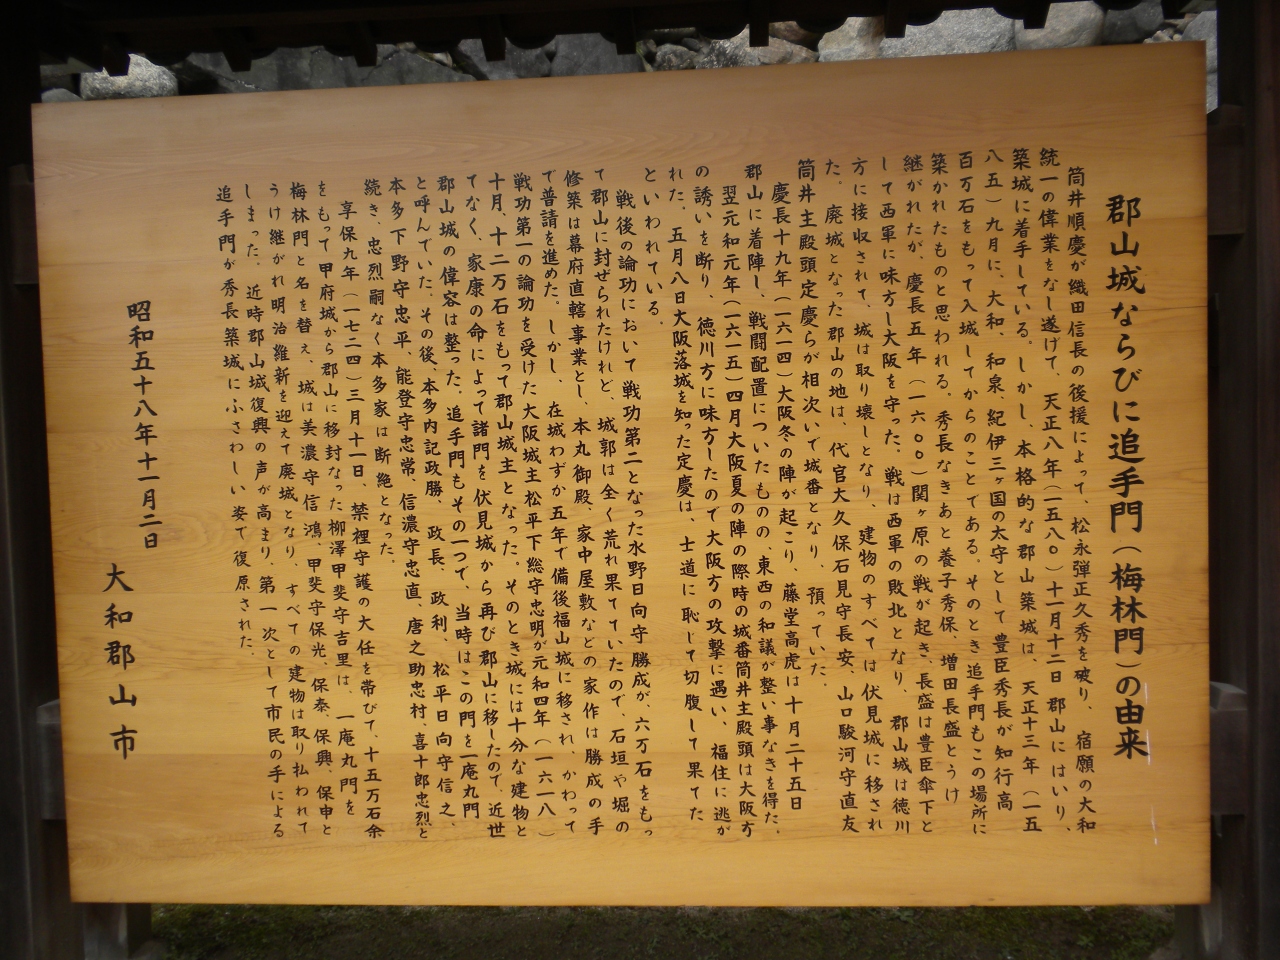 郡山城ならびに追手門(梅林門)の由来
筒井順慶が織田信長の後援によって、松永弾正久秀を破り、宿願の大和
統一の偉業をなし遂げて、天正八年(一五八〇)十一月十二日郡山にはいり、
築城に着手している。しかし、本格的な郡山築城は、天正十三年(一五
八五)九月に、大和、和泉、紀伊三ヶ国の太守として豊臣秀長が知行高
百万石をもって入城してからのことである。そのとき追手門もこの場所に
築かれたものと思われる。秀長なきあと養子秀保、増田長盛とうけ
継がれたが、慶長五年(一六〇〇)関ヶ原の戦が起き、長盛は豊臣傘下と
して西軍に味方し大阪を守った。戦は西軍の敗北となり、郡山城は徳川
方に接収されて、城は取り壊しとなり、建物のすべては伏見城に移され
た。廃城となった郡山の地は、代官大久保石見守長安、山口駿河守直友
筒井主殿頭定慶らが相次いで城番となり、預っていた。
慶長十九年(一六一四)大阪冬の陣が起こり、藤堂高虎は十月二十五日
郡山に着陣し、戦闘配置についたものの、東西の和議が整い事なきを得た。
翌元和元年(一六一五)四月大阪夏の陣の際時の城番筒井主殿頭は大阪方
の誘いを断り、徳川方に味方したので大阪方の攻撃に遇い、福住に逃が
れた。五月八日大阪落城を知った定慶は、士道に恥じて切腹して果てた
といわれている。
戦後の論功において戦功第二となった水野日向守勝成が、六万石をもっ
て郡山に封ぜられたけれど、城郭は全く荒れ果てていたので、石垣や堀の
修築は幕府直轄事業とし、本丸御殿、家中屋敷などの家作は勝成の手
で普請を進めた。しかし、在城わずか五年で備後福山城に移され、かわって
戦功第一の論功を受けた大阪城主松平下総守忠明が元和四年(一六一八)
十月、十二万石をもって郡山城主となった。そのとき城には十分な建物と
てなく、家康の命によって諸門を伏見城から再び郡山に移したので、近世
郡山城の偉容は整った。追手門もその一つで、当時はこの門を一庵丸門
と呼んでいた。その後、本多内記政勝、政長、政利、松平日向守信之、
本多下野守忠平、能登守忠常、信濃守忠直、唐之助忠村、喜十郎忠烈と
続き、忠烈嗣なく本多家は断絶となった。
享保九年(一七二四)三月十一日、禁裡守護の大任を帯びて、十五万石余
をもって甲府城から郡山に移封なった柳澤甲斐守吉里は 一庵丸門を
梅林門と名を替え、城は美濃守信鴻、甲斐守保光、保泰、保興、保申と
うけ継がれ明治維新を迎えて廃城となり、すべての建物は取り払われて
しまった。近時郡山城復興の声が高まり、第一次として市民の手による
追手門が秀長築城にふさわしい姿で復原された。
昭和五十八年十一月二日
大和郡山市